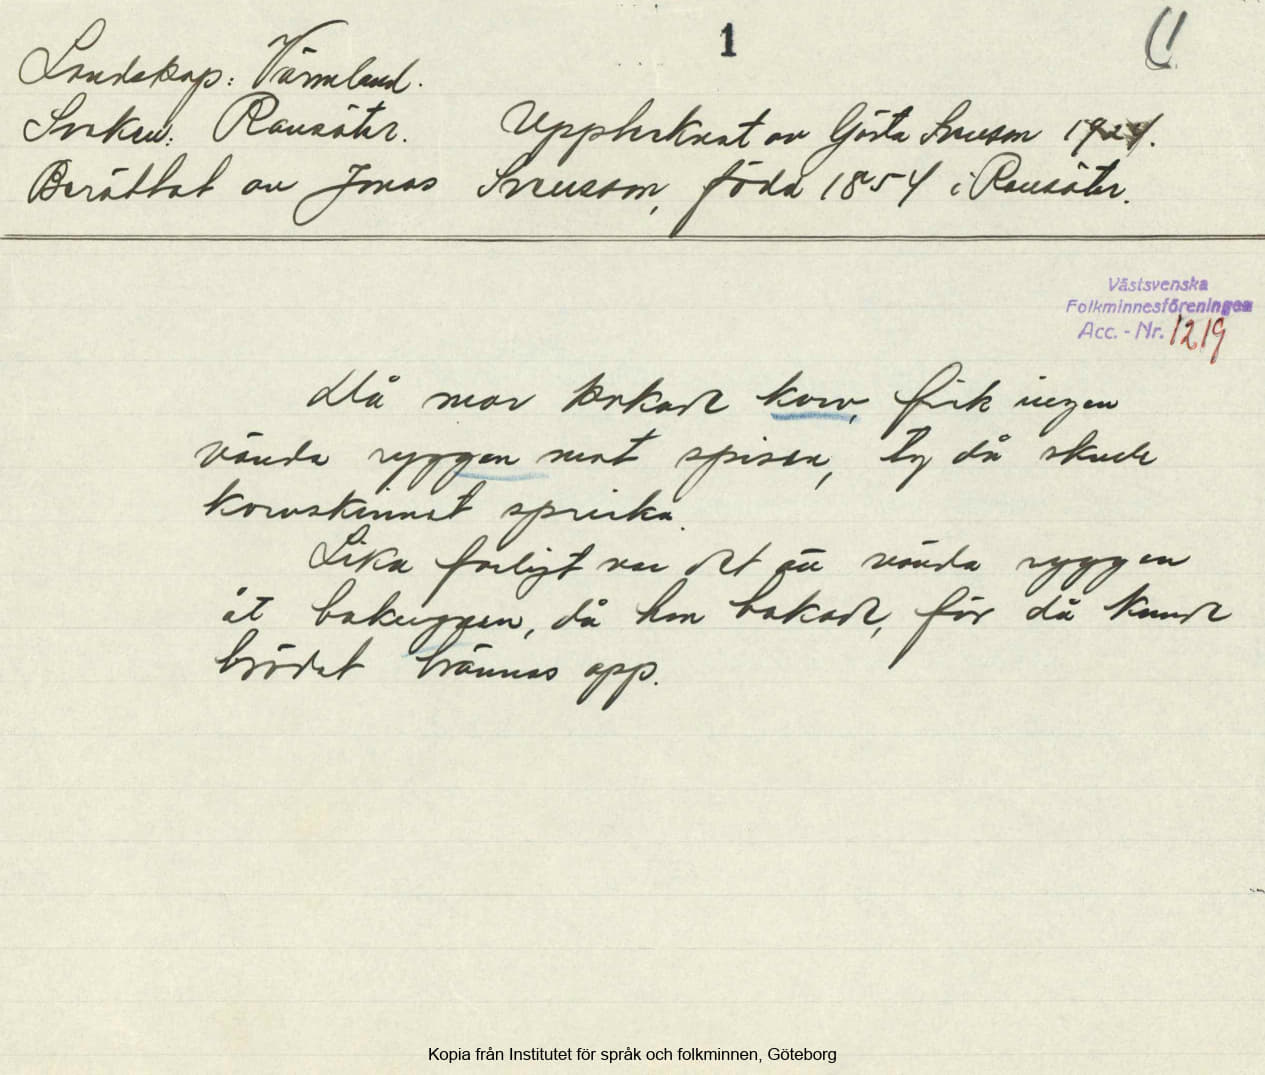 1
Landskap: Värmland.
Socken: Ransäter. Upptecknat av Gösta Svenson 1927.
Berättat av Jonas Svensson, född 1854 i Ransäter.
Västsvenska
Folkminnesföreningen
Acc. - Nr. 1219
Då mor kokade korv, fick ingen
vända ryggen mot spisen, ty då skude
korvskinnet spricka.
Lika farligt var det att vända ryggen
åt bakuggen, då hon bakade, för då kunde
brödet brännas opp.
Kopia från Institutet för språk och folkminnen, Göteborg